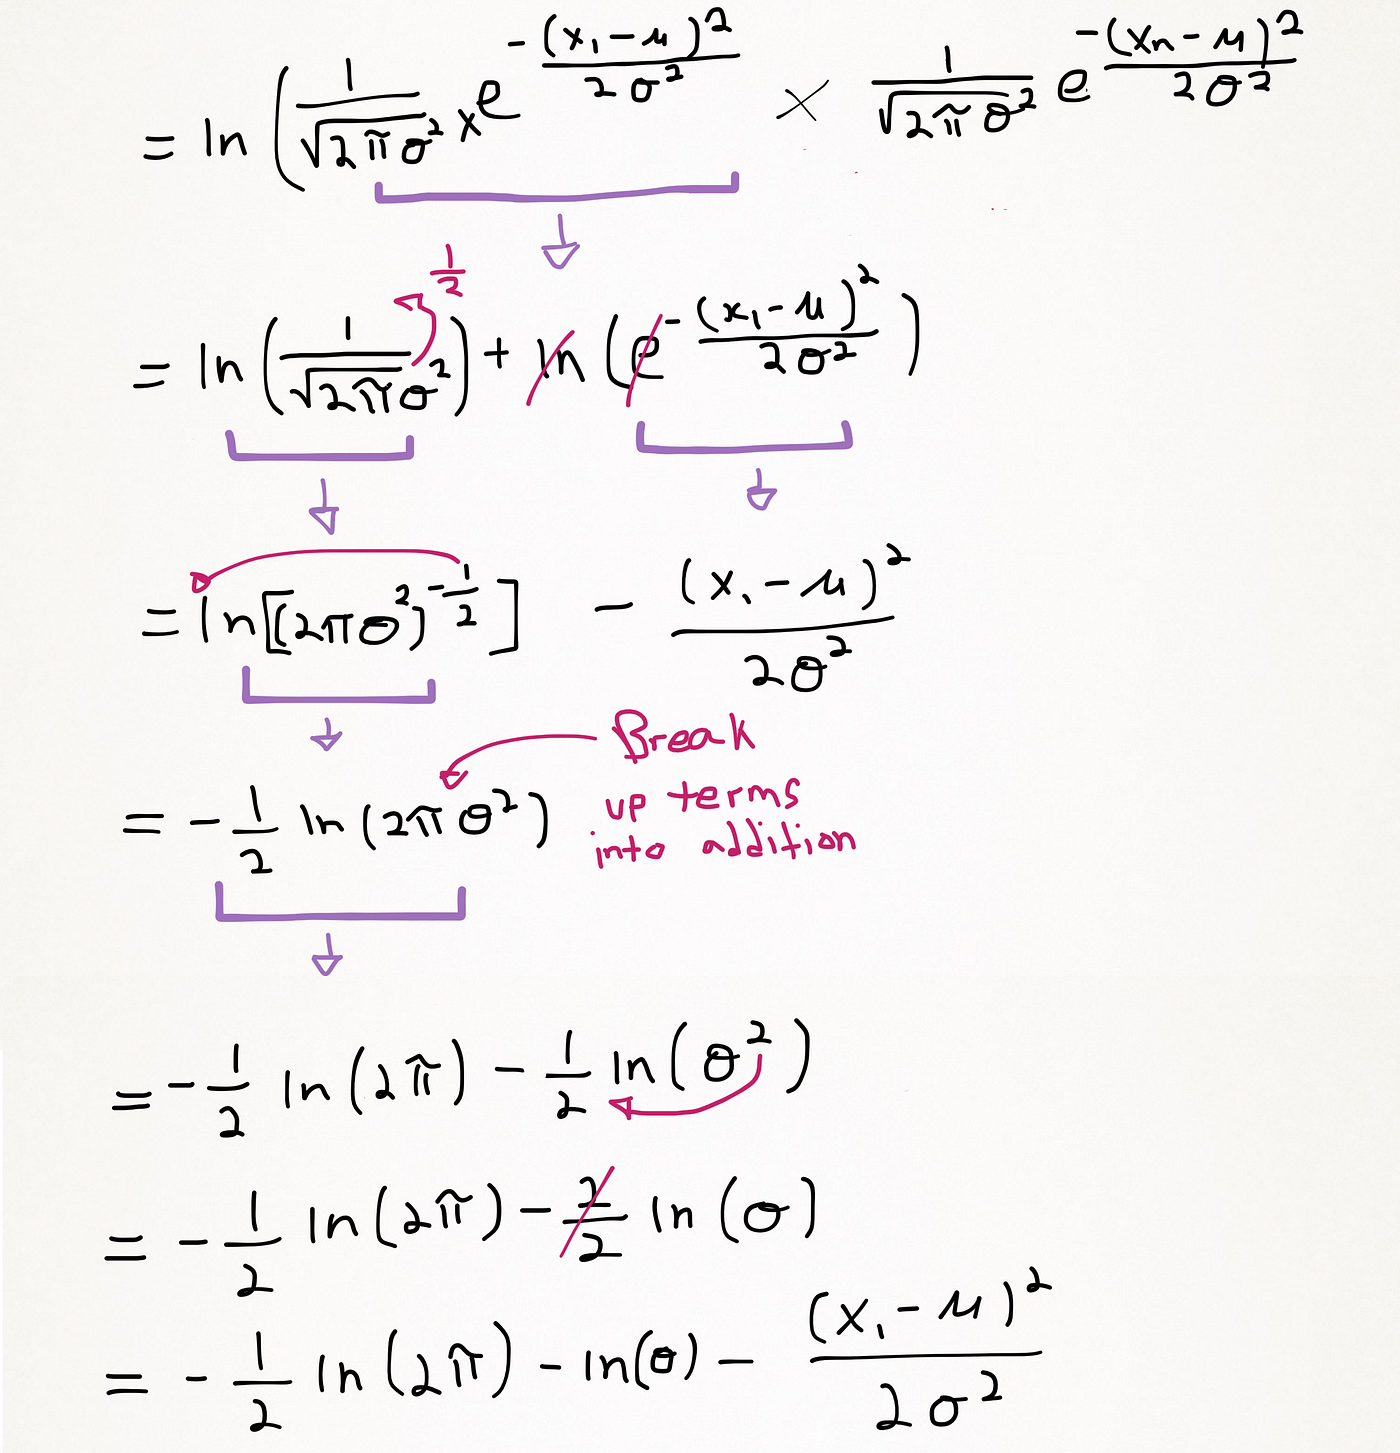 = ln ( 1/√(2πσ²) × e^(-(x₁-μ)²/2σ²) × 1/√(2πσ²) e^(-(xn-μ)²/2σ²)
1/2
= ln ( 1/√(2πσ²) ) + ln ( e^(-(x₁-μ)²/2σ²) )
= ln[(2πσ²)^(-1/2)] - (x₁-μ)²/2σ²
Break
= -1/2 ln (2πσ²) up terms
into addition
= -1/2 ln (2π) - 1/2 ln (σ²)
= -1/2 ln (2π) - 2/2 ln (σ)
= -1/2 ln (2π) - ln(σ) - (x₁-μ)²/2σ²